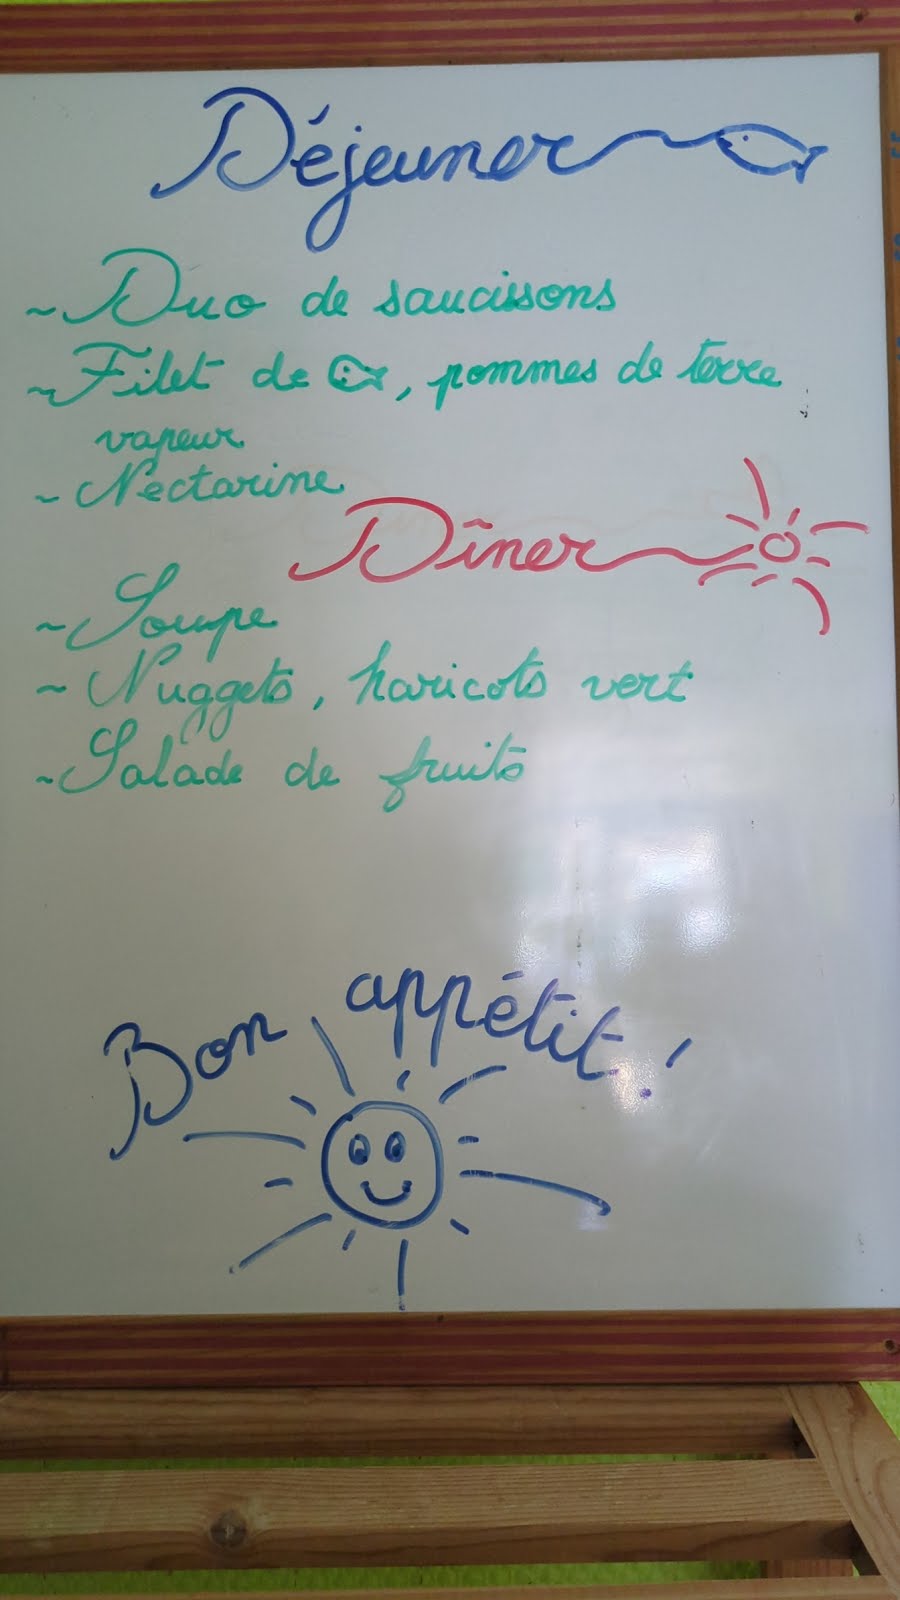 Déjeuner
~ Duo de saucissons
~ Filet de , pommes de terre
vapeur
~ Nectarine
Dîner
~ Soupe
~ Nuggets, haricots vert
~ Salade de fruits
Bon appétit !